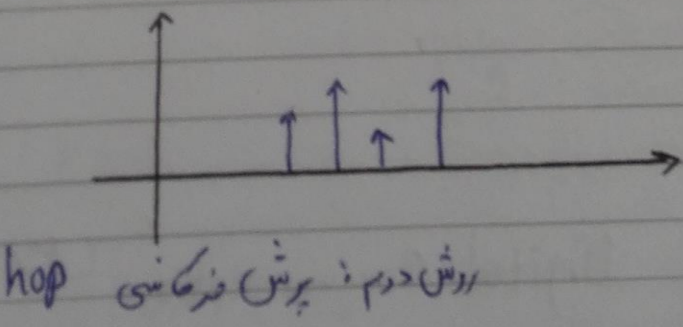 روش دوم: پرش فرکانسی hop